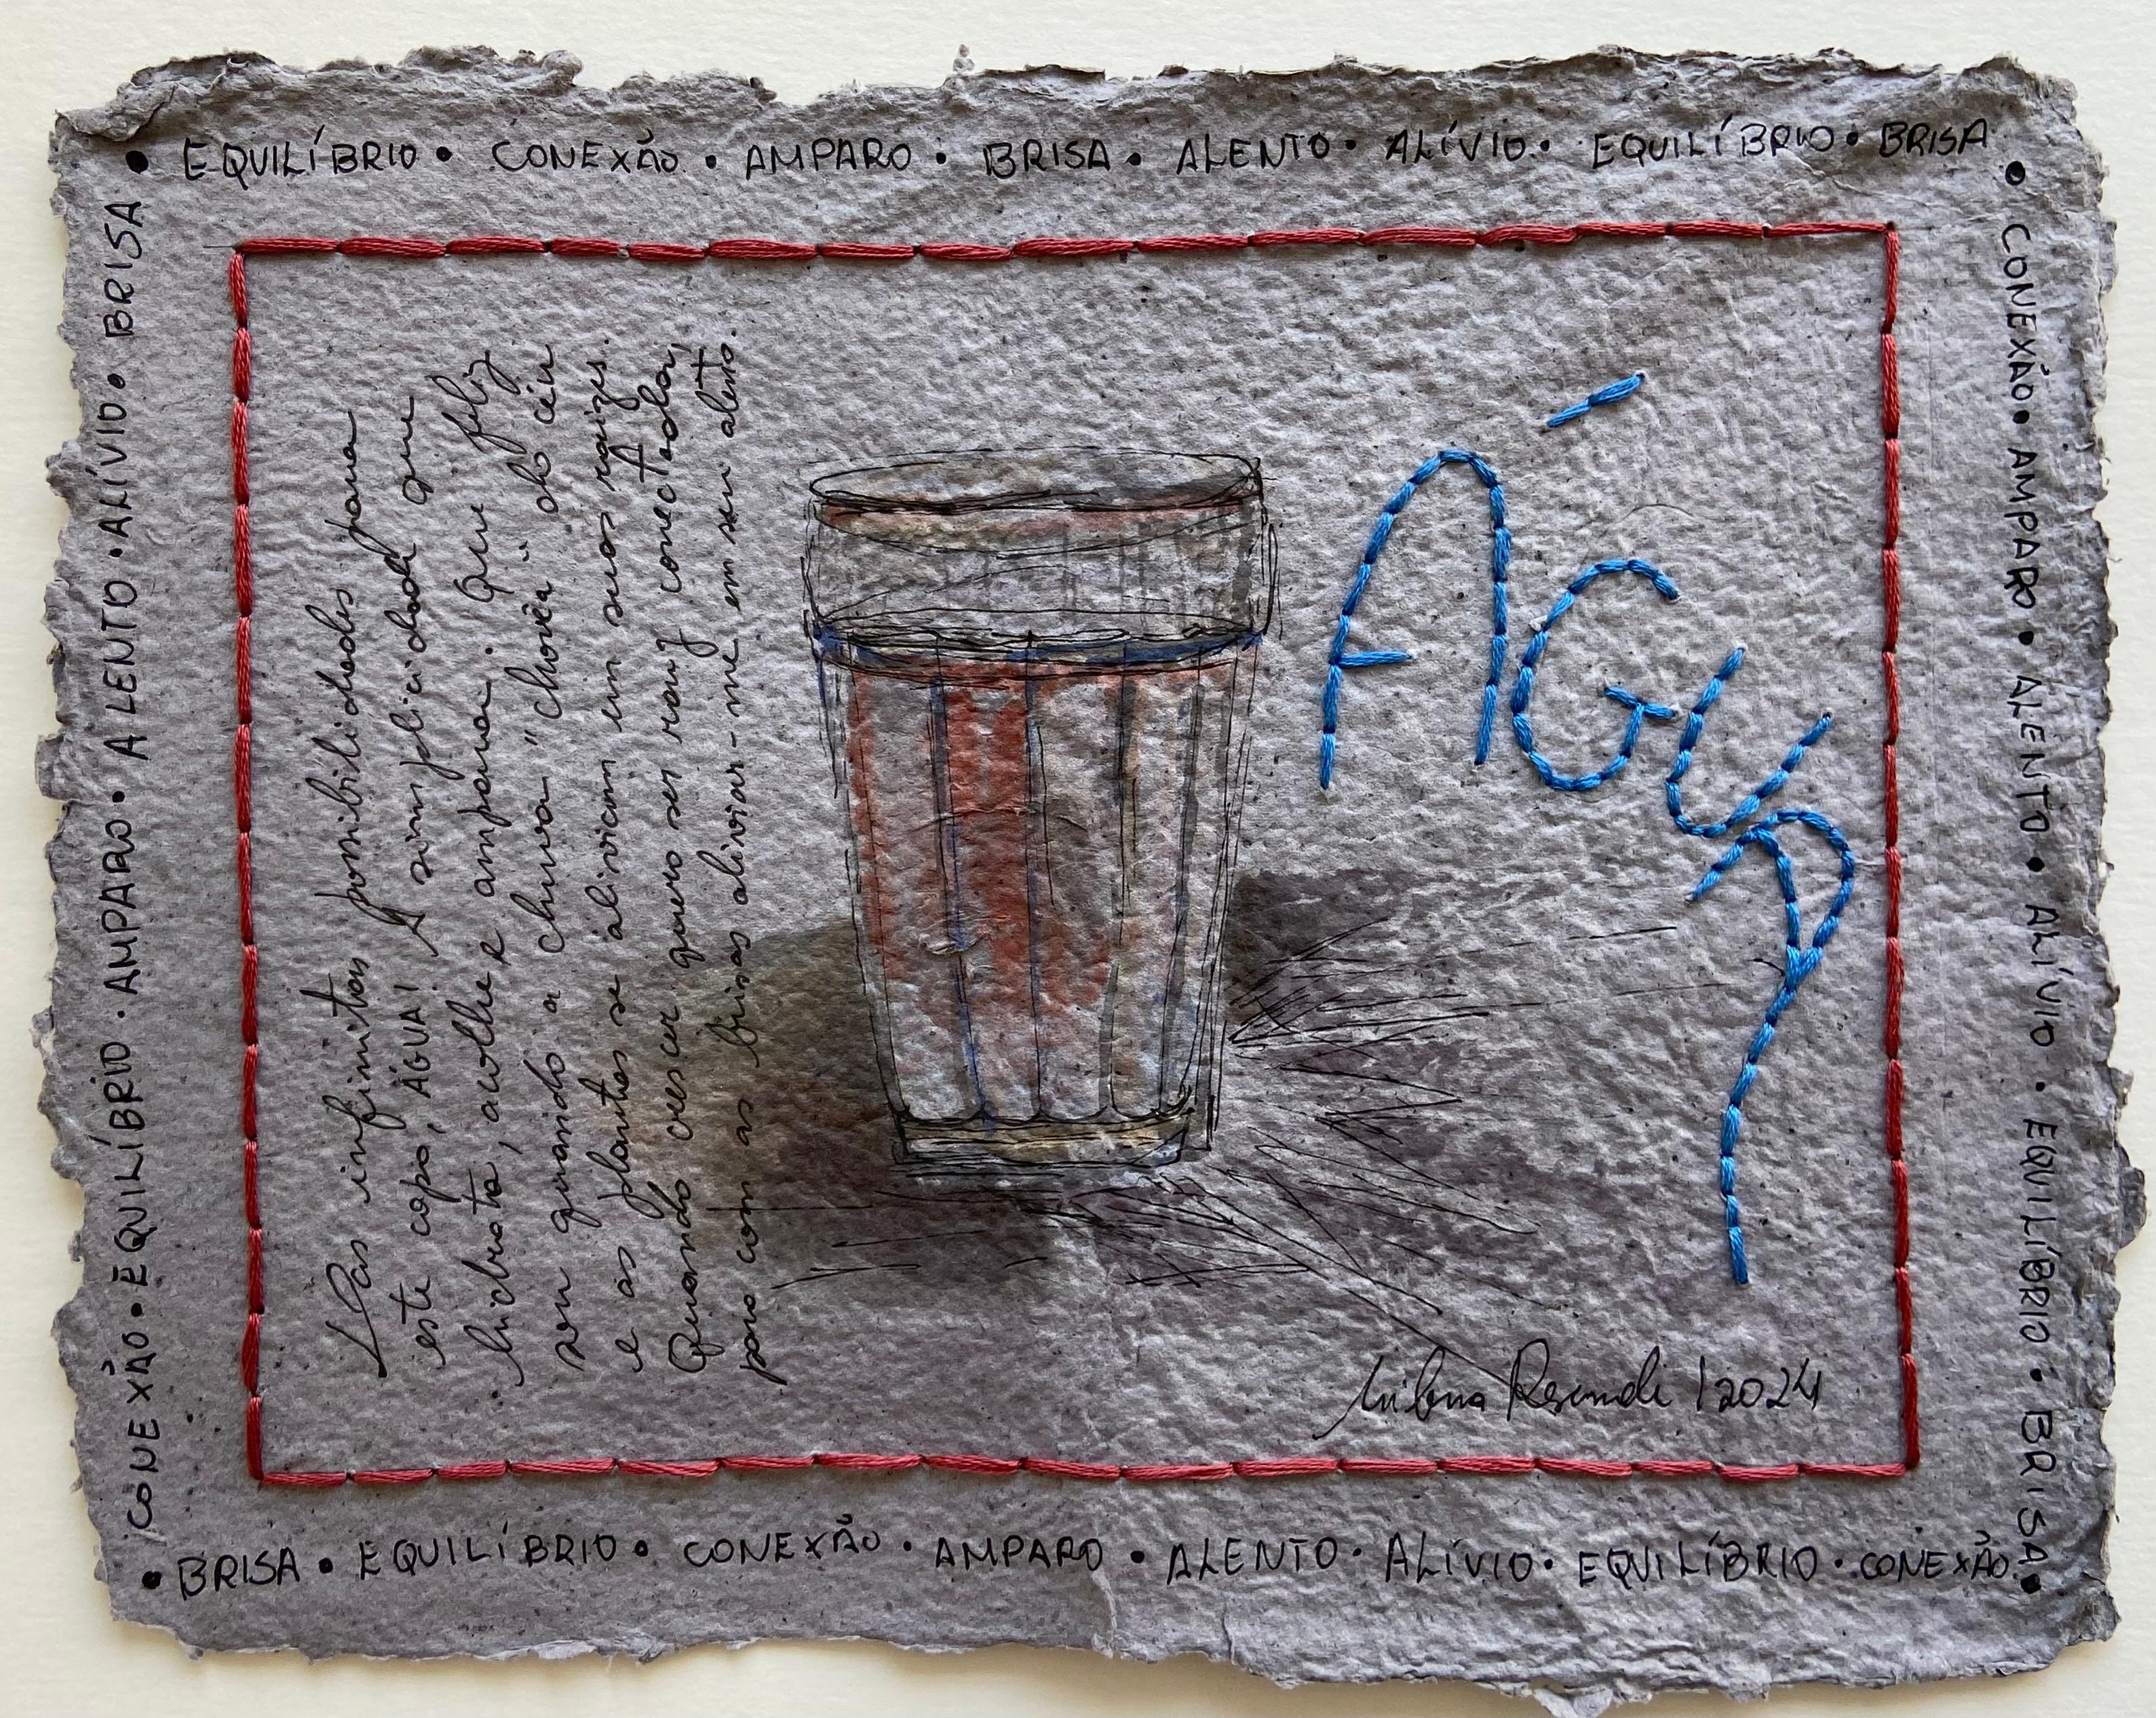 • EQUILÍBRIO • CONEXÃO • AMPARO • BRISA • ALENTO • ALÍVIO • EQUILÍBRIO • BRISA
• CONEXÃO • AMPARO • ALENTO • ALÍVIO • EQUILÍBRIO • BRISA •
• BRISA • EQUILÍBRIO • CONEXÃO • AMPARO • ALENTO • ALÍVIO • EQUILÍBRIO • CONEXÃO
CONEXÃO • EQUILÍBRIO • AMPARO • ALENTO • ALÍVIO • BRISA
Das infinitas possibilidades para
este copo, ÁGUA! A simplicidade que
hidrata, acolhe e ampara. Que feliz
sou quando a chuva "chovia" do céu
e as plantas se aliviam em suas raízes.
Quando crescer quero ser raiz conectada,
para com as brisas aliviar-me em seu alento.
ÁGUA
Milena Resende | 2024